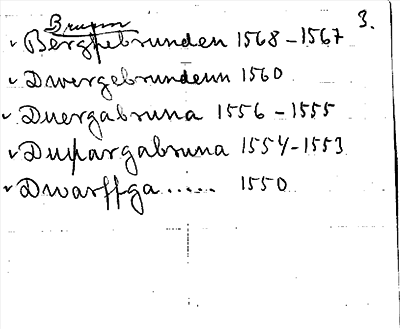 3.
Brunn
Berghebrunden 1568-1567
Dwergebrundenn 1560
Duergabruna 1556-1555
Duuargabruna 1554-1553
Dwarffga ..... 1550